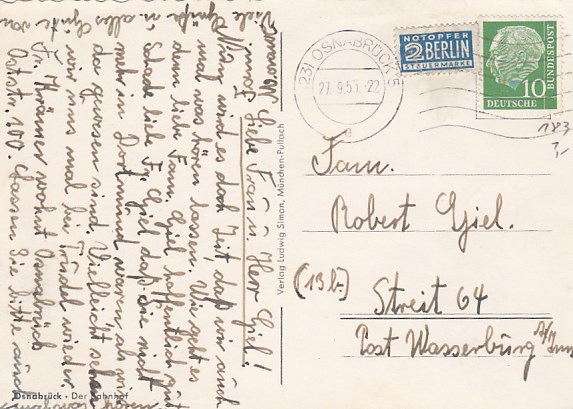 Liebe Frau u. Herr Giel!
Nun wird es doch Zeit, daß wir auch
mal was hören lassen. Wie geht es
denn liebe Fam. Giel hoffentlich gut
Schade liebe Fr. Giel daß Sie nicht
mehr in Dortmund waren als wir
da gewesen sind. Vielleicht sehen
wir uns mal bei Trudel wieder.
Fr. Krämer wohnt Osnabrück
Oststr. 100. Lassen Sie bitte auch
Viele Grüße u. alles Gute von
Osnabrück • Der Bahnhof
Verlag Ludwig Simon, München-Pullach
(23) OSNABRÜCK 5
27.9.55.-22
a
NOTOPFER
2 BERLIN
STEUERMARKE
10
DEUTSCHE
BUNDESPOST
183
1,-
Fam.
Robert Giel.
(13b)
Streit 64
Post Wasserburg a/Inn